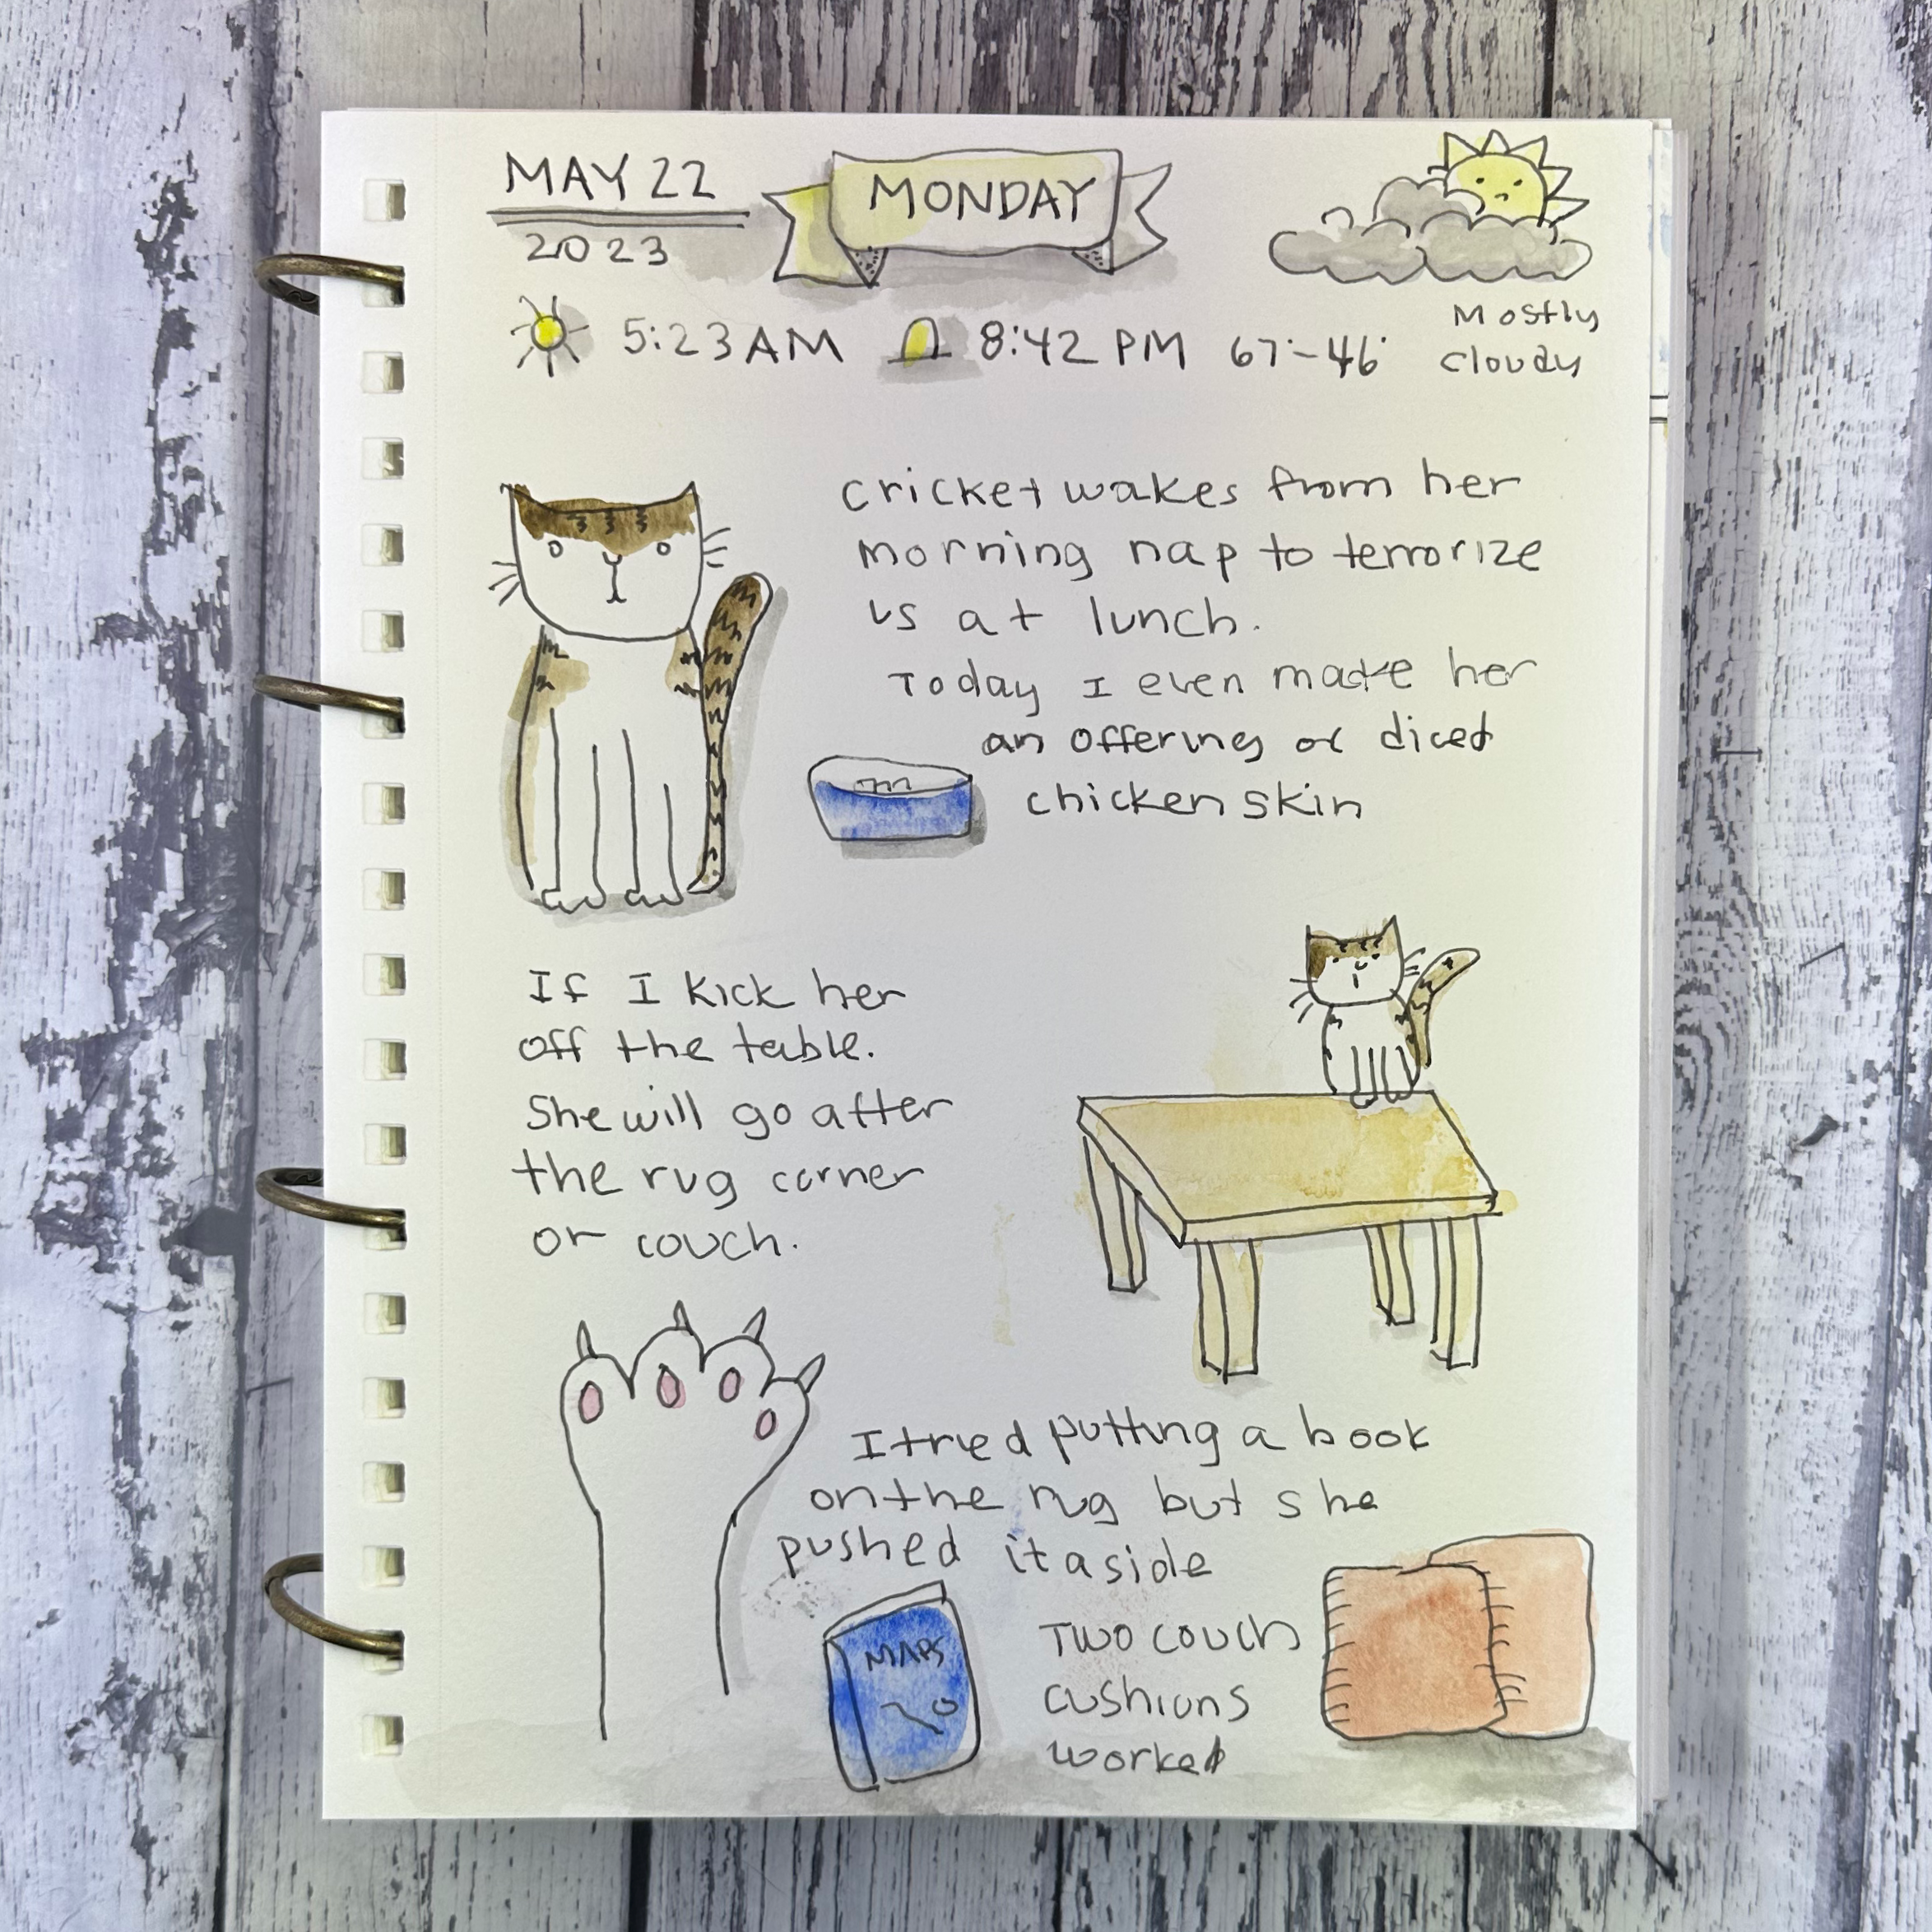 MAY 22
2023
MONDAY
5:23 AM 8:42 PM 67°-46°
Mostly
cloudy
cricket wakes from her
morning nap to terrorize
us at lunch.
Today I even made her
an offering of diced
chicken skin
If I kick her
off the table.
She will go after
the rug corner
or couch.
I tried putting a book
on the rug but she
pushed it aside
MAPS
Two couch
cushions
worked